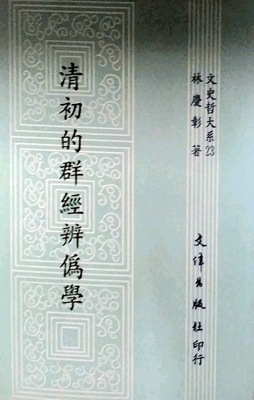 文史哲大系23
林慶彰 著
文津出版社印行
清初的群經辨偽學